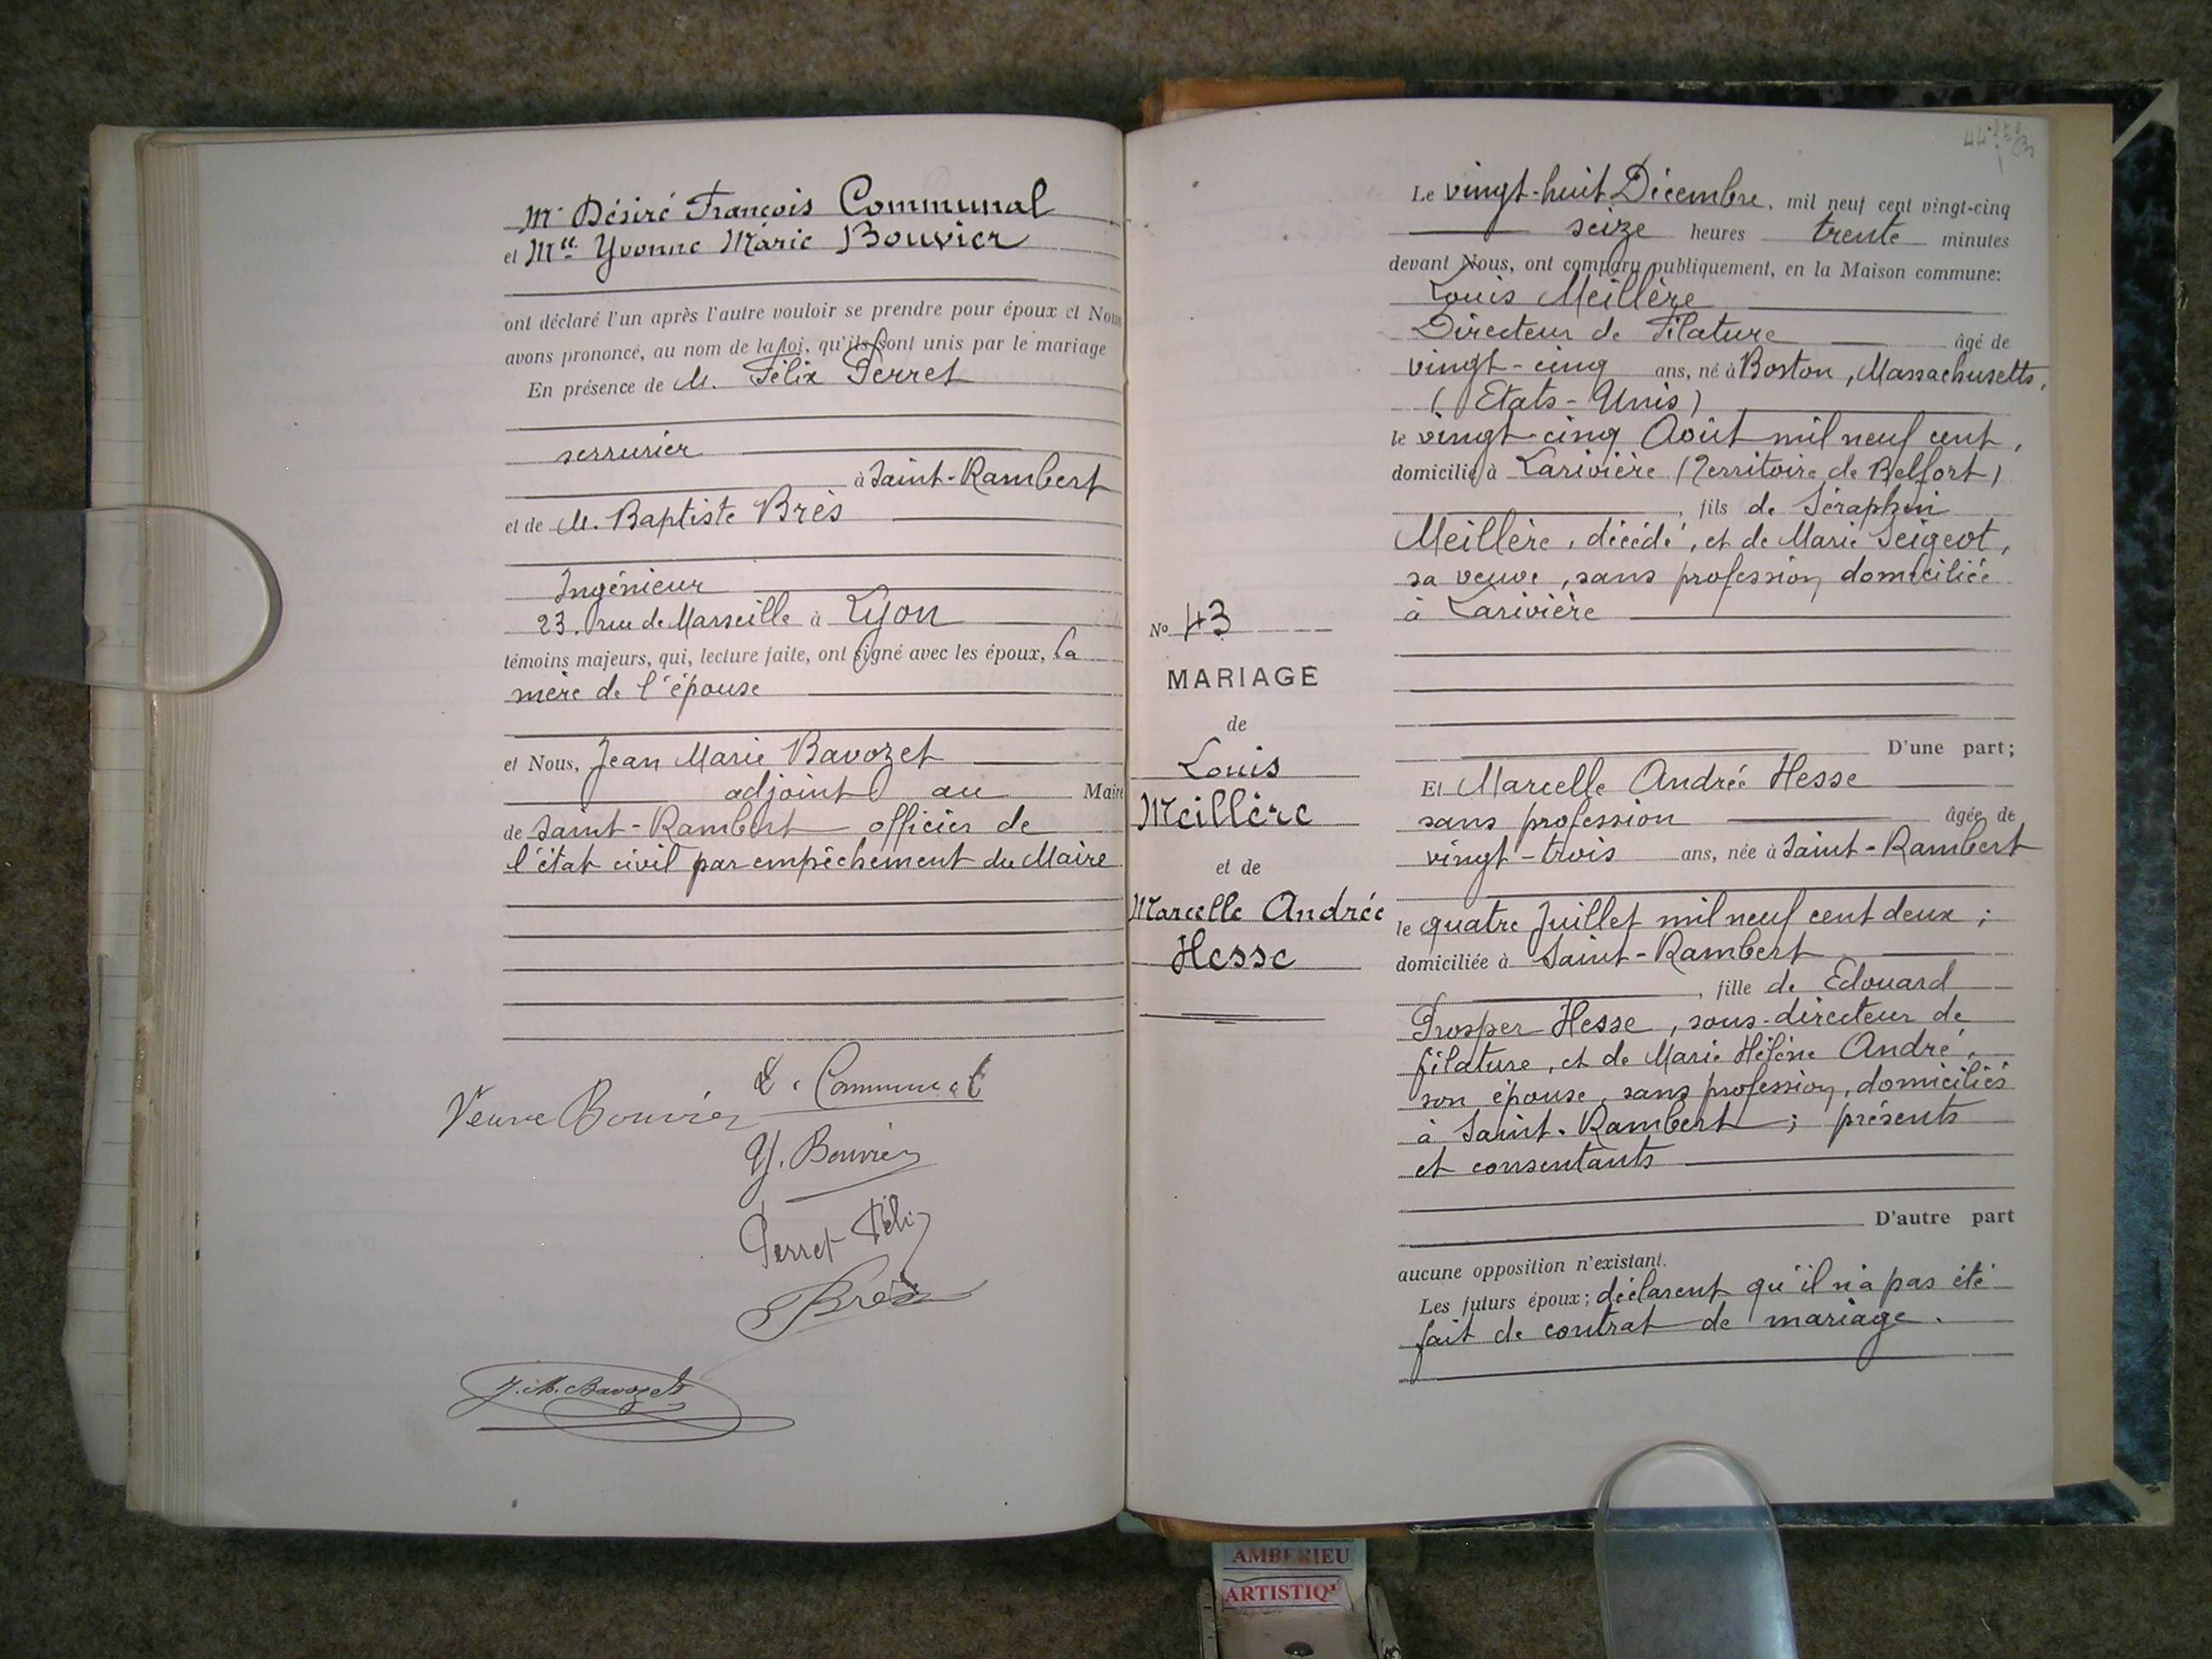 Mr Désiré François Communal
et Mlle Yvonne Marie Bouvier
ont déclaré l'un après l'autre vouloir se prendre pour époux et Nous
avons prononcé, au nom de la loi, qu'ils sont unis par le mariage
En présence de M. Félix Perret
serrurier
à Saint-Rambert
et de M. Baptiste Brès
Ingénieur
23. rue de Marseille à Lyon
témoins majeurs, qui, lecture faite, ont signé avec les époux, la
mère de l'épouse
et Nous, Jean Marie Bavozet
adjoint au Maire
de Saint-Rambert officier de
l'état civil par empêchement du Maire
Communal
Veuve Bouvier
Y. Bouvier
Perret Félix
Brès
J. M. Bavozet
44
Le vingt-huit Décembre, mil neuf cent vingt-cinq
seize heures trente minutes
devant Nous, ont comparu publiquement, en la Maison commune:
Louis Meillère
Directeur de Filature âgé de
vingt-cinq ans, né à Boston, Massachusetts,
(Etats-Unis)
le vingt-cinq Août mil neuf cent,
domicilié à Larivière (Territoire de Belfort)
, fils de Séraphin
Meillère, décédé, et de Marie Seigeot,
sa veuve, sans profession domiciliée
à Larivière
D'une part;
No 43
MARIAGE
de
Louis
Meillère
et de
Marcelle Andrée
Hesse
Et Marcelle Andrée Hesse
sans profession âgée de
vingt-trois ans, née à Saint-Rambert
le quatre Juillet mil neuf cent deux;
domiciliée à Saint-Rambert
, fille de Edouard
Prosper Hesse, sous-directeur de
filature, et de Marie Hélène André,
son épouse, sans profession, domiciliés
à Saint-Rambert; présents
et consentants
D'autre part
aucune opposition n'existant.
Les futurs époux; déclarent qu'il n'a pas été
fait de contrat de mariage.
AMBERIEU
ARTISTIQ